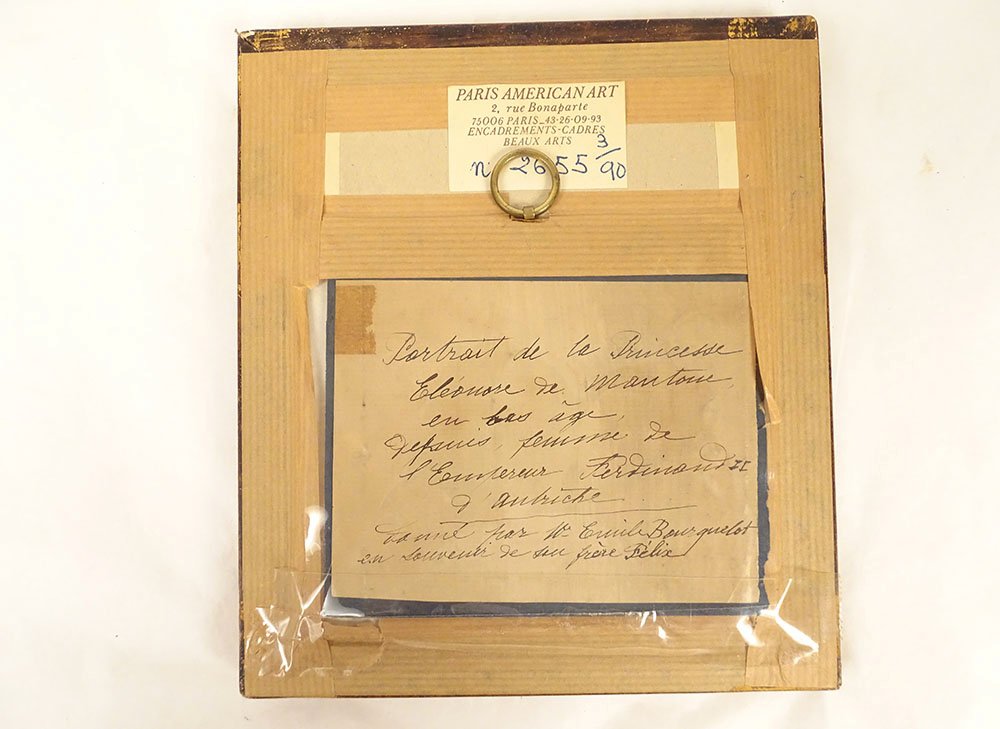 PARIS AMERICAN ART
2, rue Bonaparte
75006 PARIS_43-26-09-93
ENCADREMENTS-CADRES
BEAUX ARTS
n° 2655 3/90
Portrait de la Princesse
Eléonore de Mantoue,
en bas âge,
depuis, femme de
l'Empereur Ferdinand II
d'Autriche
Donné par Mr Emile Bourquelot
en souvenir de son frère Félix